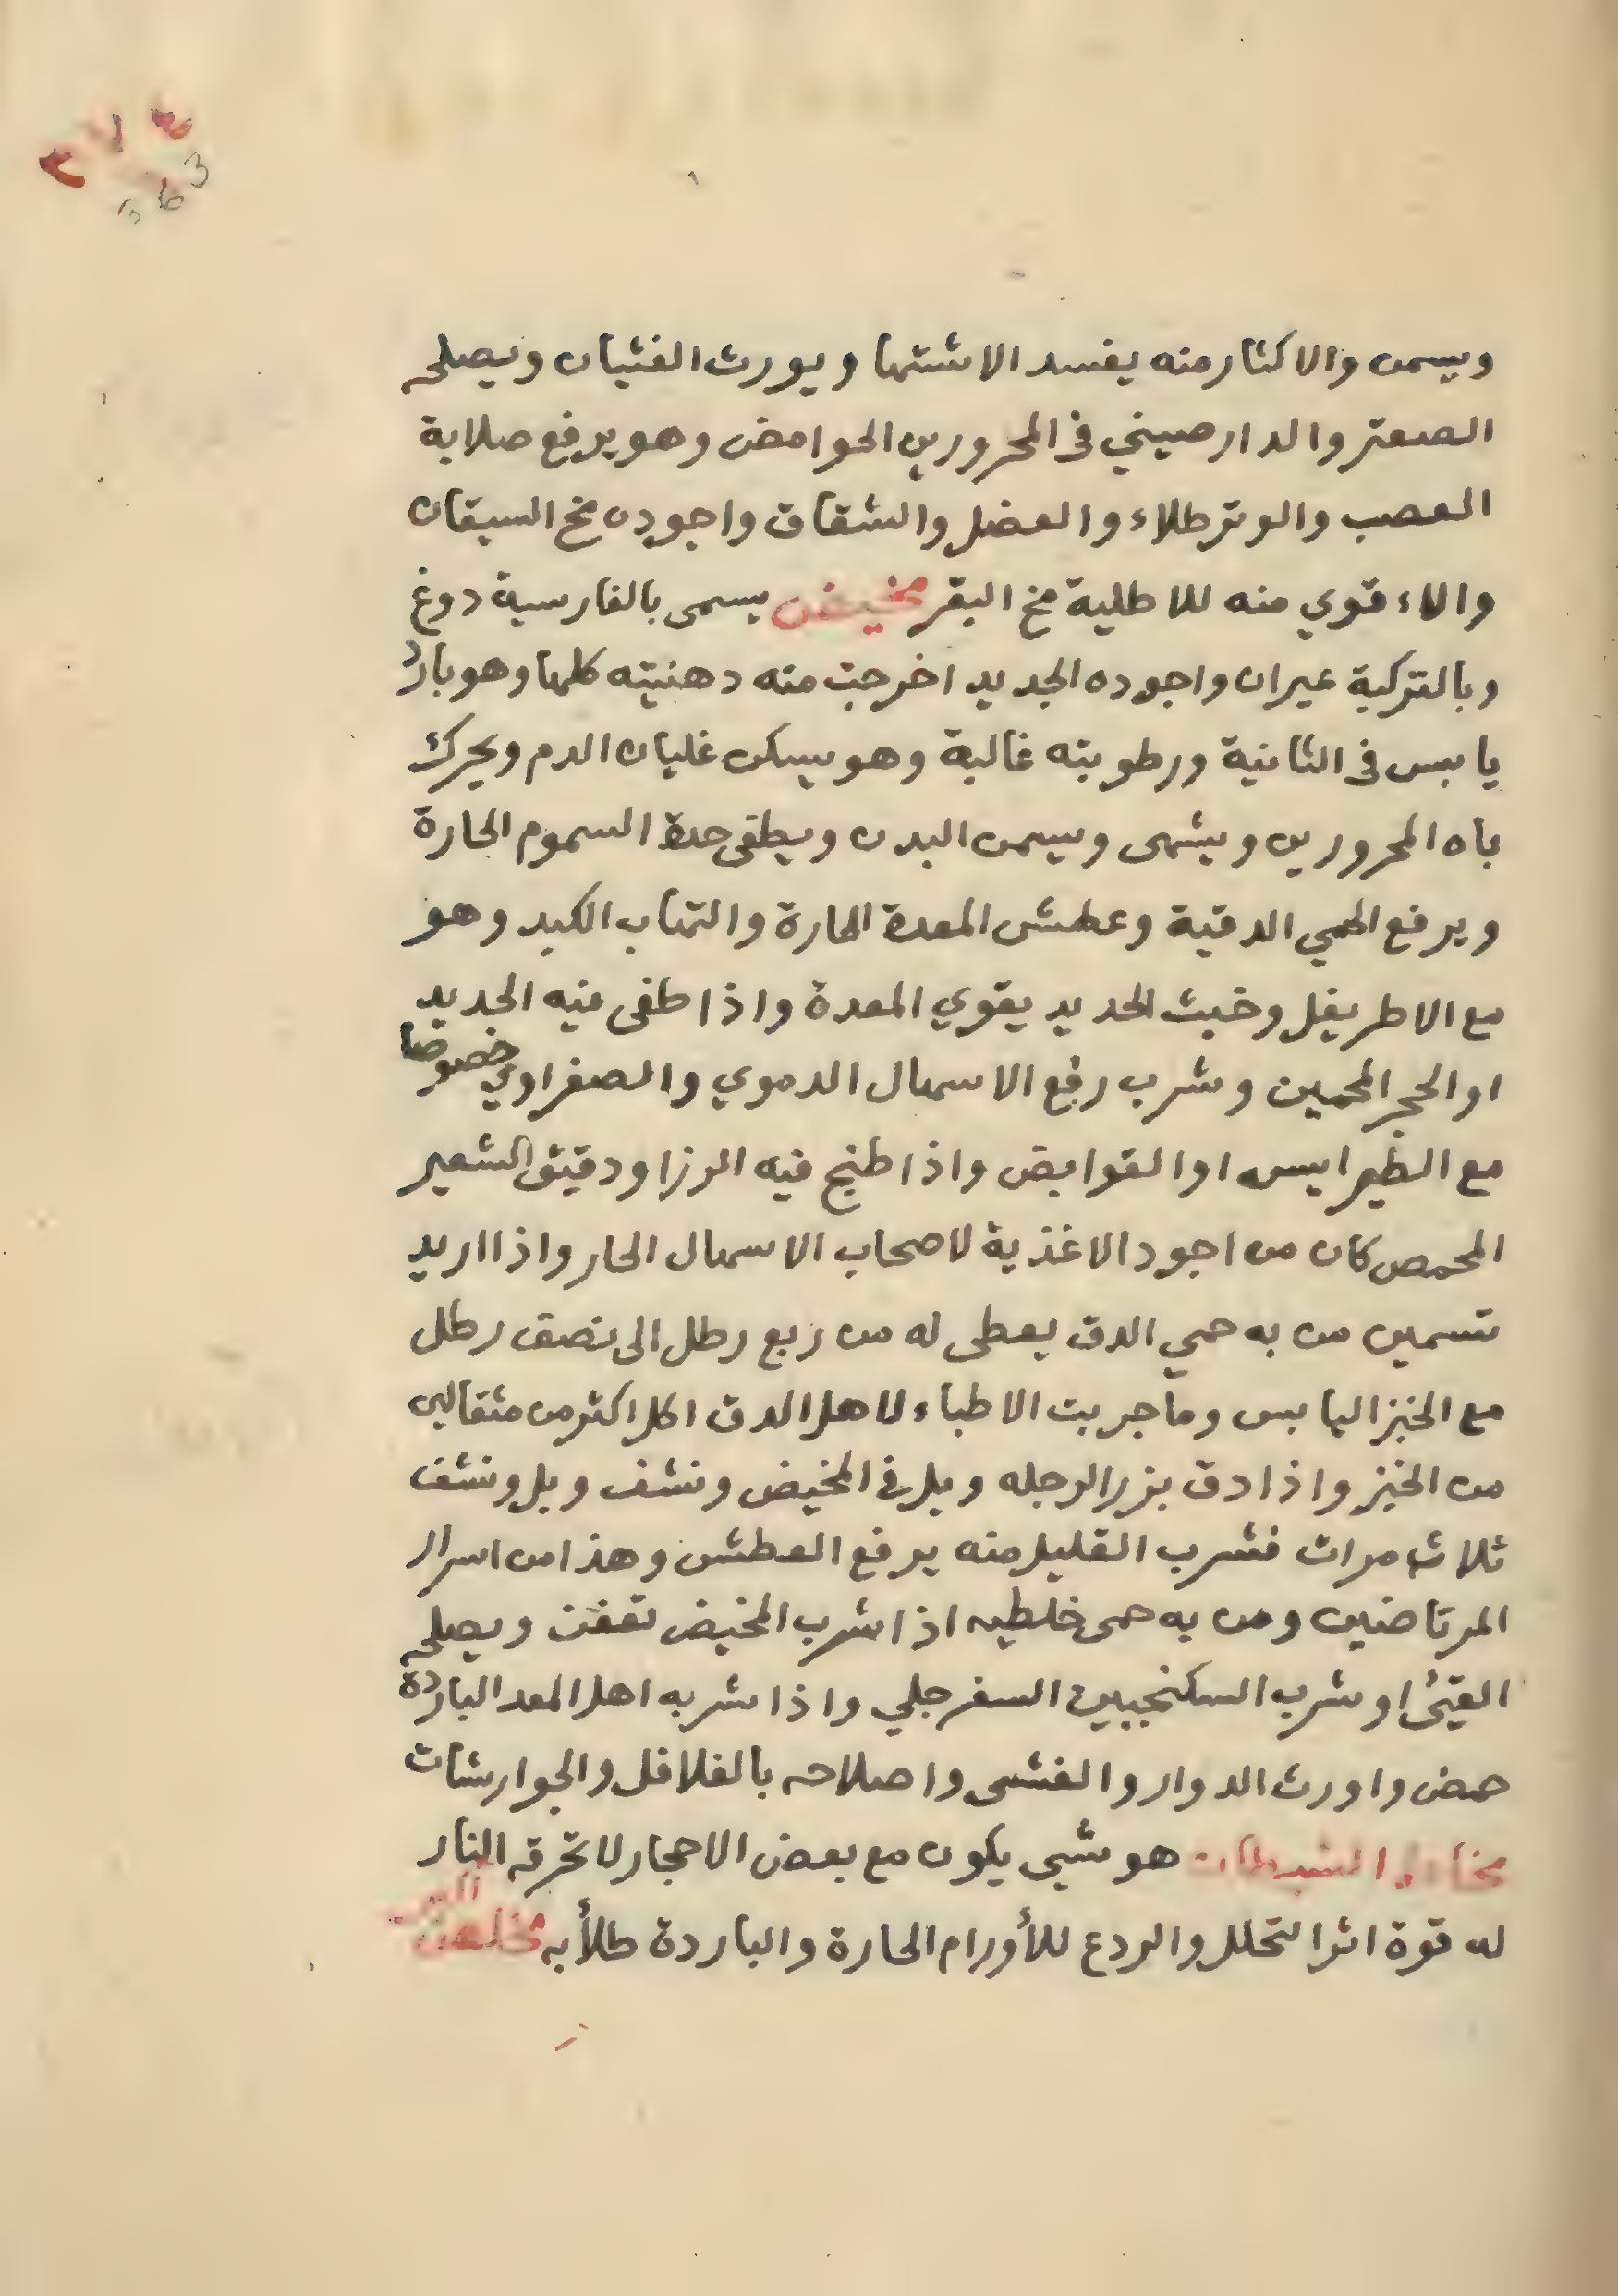 ويسمن والاكثار منه يفسد الاشتها ويورث الغثيان ويصلحه
الصعتر والدارصيني فى المحرورين الحوامض وهو يرفع صلابة
العصب والوتر طلاء والعضل والشقاق واجوده مخ السيقان
والاء قوي منه للاطلية مخ البقر مخيض يسمى بالفارسية دوغ
وبالتركية عيران واجوده الجديد اخرجت منه دهنيته كلها وهو بارد
يابس فى الثانية ورطوبته غالبة وهو يسكن غليان الدم ويحرك
باه المحرورين ويشهى ويسمن البدن ويطفى حدة السموم الحارة
ويرفع الحمي الدقية وعطش المعدة الحارة والتهاب الكبد وهو
مع الاطريفل وخبث الحديد يقوي المعدة واذا طفى فيه الحديد
او الحجر المحمين وشرب رفع الاسهال الدموي والصفراوي خصوصا
مع الطرايس او القوابض واذا طبخ فيه الرزا ودقيق الشعير
المحمص كان من اجود الاغذية لاصحاب الاسهال الحار واذا اريد
تسمين من به حمي الدق يعطى له من ربع رطل الى نصف رطل
مع الخبز اليابس وما جربت الاطباء لاهل الدق اكل اكثر من مثقالين
من الخبز واذا دق بزر الرجله وبل في المخيض ونشف وبل ونشف
ثلاث مرات فشرب القليل منه يرفع العطش وهذا من اسرار
المرتاضين ومن به حمى خلطيه اذا شرب المخيض تعفنت ويصلحه
القيئ او شرب السكنجبين السفرجلي واذا شربه اهل المعد الباردة
حمض واورث الدوار والغشى واصلاحه بالفلافل والجوارشات
مخاط الشيطان هو شيى يكون مع بعض الاحجار لا تحرقه النار
له قوة اثرا لتحلل والردع للأورام الحارة والباردة طلأ به